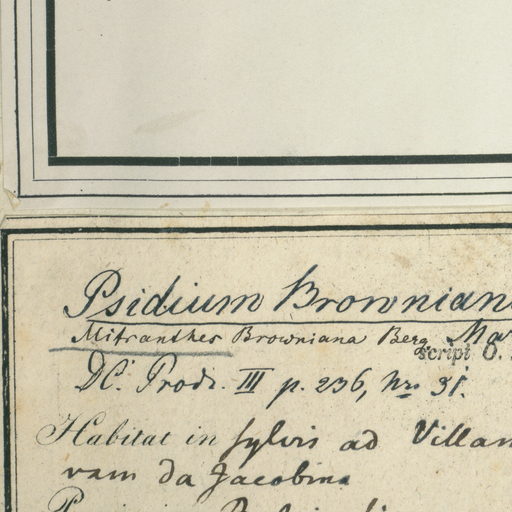 Psidium Brownian
Mitranthes Browniana Berg Mar
script O.
DC. Prodr. III p. 236, Nr. 31.
Habitat in sylvis ad Villam
vam da Jacobina